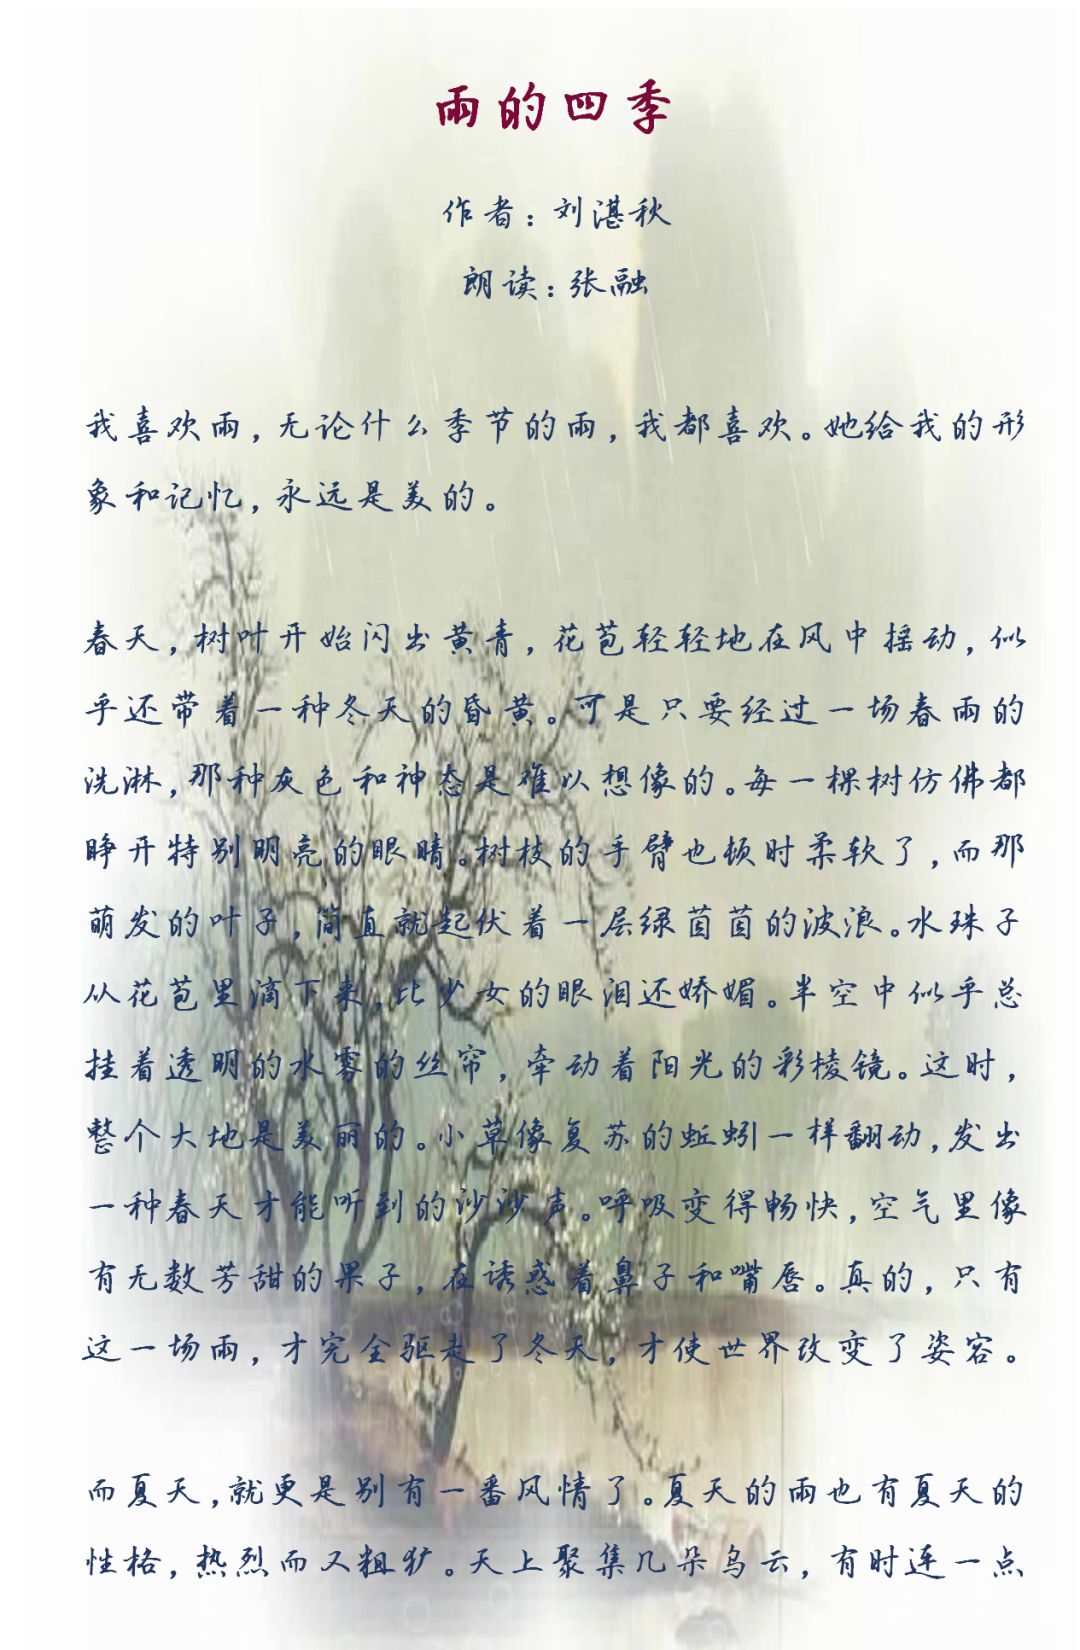 雨的四季
作者:刘湛秋
朗读:张融
我喜欢雨,无论什么季节的雨,我都喜欢。她给我的形
象和记忆,永远是美的。
春天,树叶开始闪出黄青,花苞轻轻地在风中摇动,似
乎还带着一种冬天的昏黄。可是只要经过一场春雨的
洗淋,那种灰色和神态是难以想像的。每一棵树仿佛都
睁开特别明亮的眼睛。树枝的手臂也顿时柔软了,而那
萌发的叶子,简直就起伏着一层绿茵茵的波浪。水珠子
从花苞里滴下来,比少女的眼泪还娇媚。半空中似乎总
挂着透明的水雾的丝帘,牵动着阳光的彩棱镜。这时,
整个大地是美丽的。小草像复苏的蚯蚓一样翻动,发出
一种春天才能听到的沙沙声。呼吸变得畅快,空气里像
有无数芳甜的果子,在诱惑着鼻子和嘴唇。真的,只有
这一场雨,才完全驱走了冬天,才使世界改变了姿容。
而夏天,就更是别有一番风情了。夏天的雨也有夏天的
性格,热烈而又粗犷。天上聚集几朵乌云,有时连一点